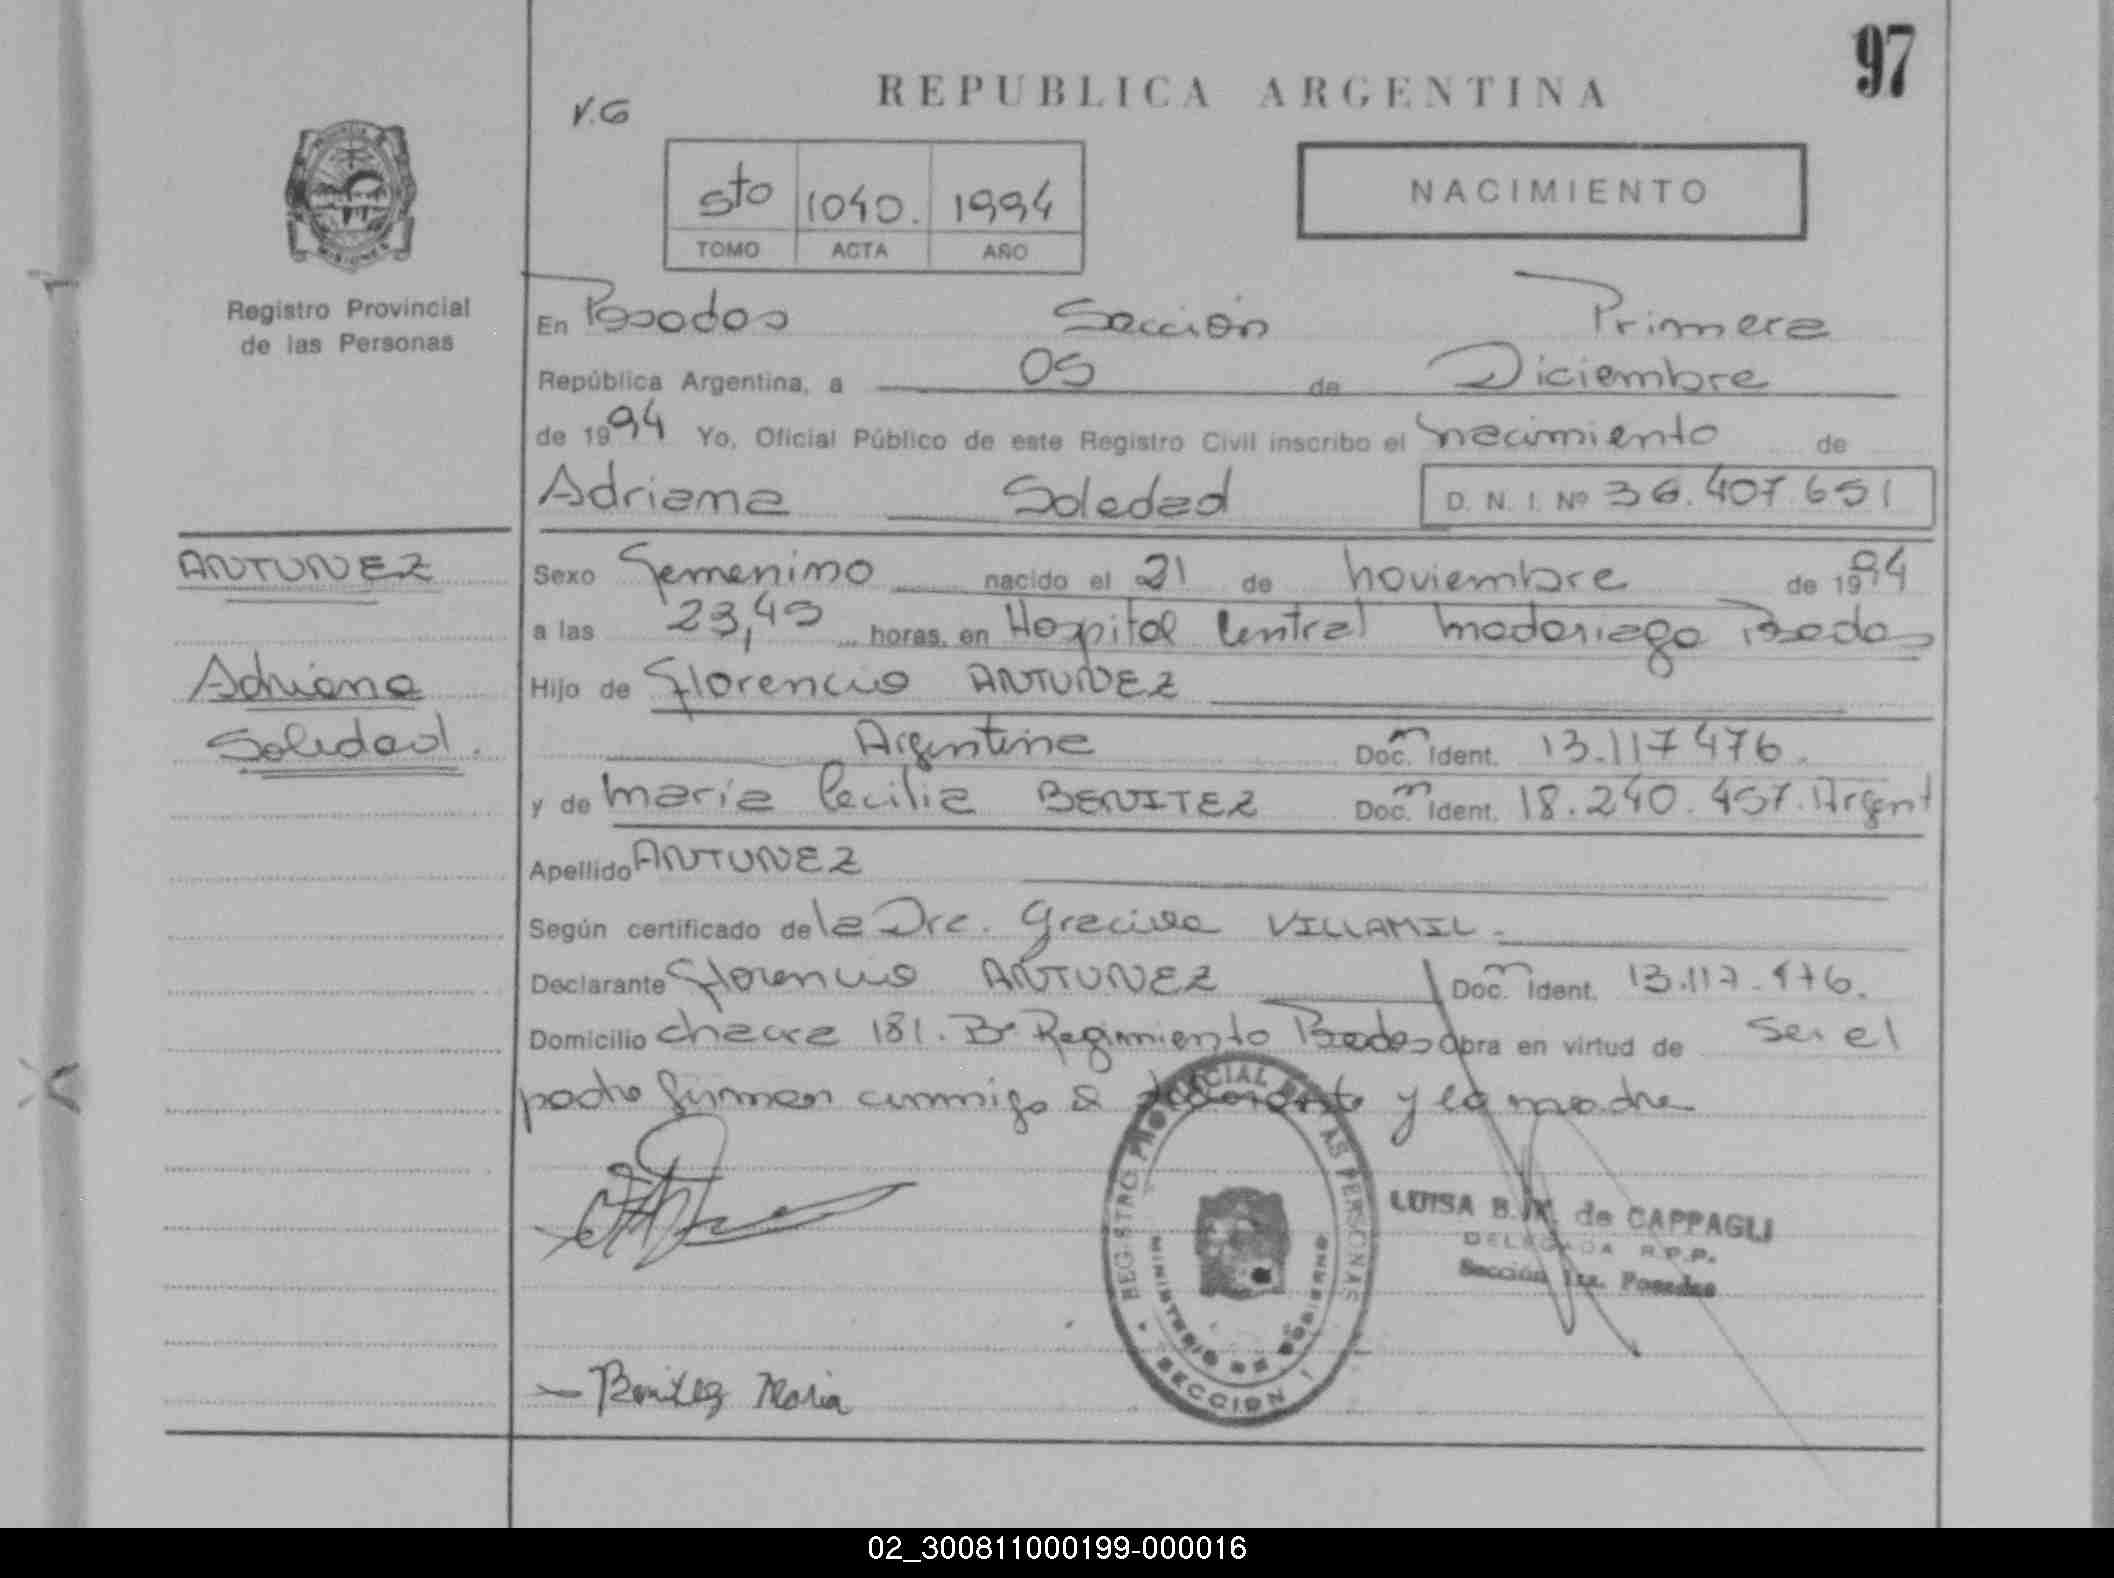 97
REPUBLICA ARGENTINA
V.G
NACIMIENTO
5to 1040. 1994
TOMO ACTA AÑO
Registro Provincial
de las Personas
En Posadas Sección Primera
República Argentina, a 05 de Diciembre
de 1994 Yo, Oficial Público de este Registro Civil inscribo el nacimiento de
Adriana Soledad D. N. I. Nº 36.407.651
ANTUNEZ
Adriana
Soledad.
Sexo femenino nacido el 21 de noviembre de 1994
a las 23,45 horas, en Hospital Central Madariaga Posadas
Hijo de Florencio ANTUNEZ
Argentina Doc. m Ident. 13.117.476.
y de maria Cecilia BENITEZ Doc. m Ident. 18.240.457. Argent
Apellido ANTUNEZ
Según certificado de la Dra. Graciela VILLAMIL.
Declarante Florencio ANTUNEZ Doc. m Ident. 13.117.476.
Domicilio chacra 181. Bº Regimiento Posadas obra en virtud de ser el
padre firman conmigo el declarante y la madre
REGISTRO PROVINCIAL DE LAS PERSONAS
MINISTERIO DE GOBIERNO
SECCION 1
LUISA B. de CAPPAGLI
DELEGADA R.P.P.
Sección 1ra. Posadas
Benitez Maria
02_300811000199-000016